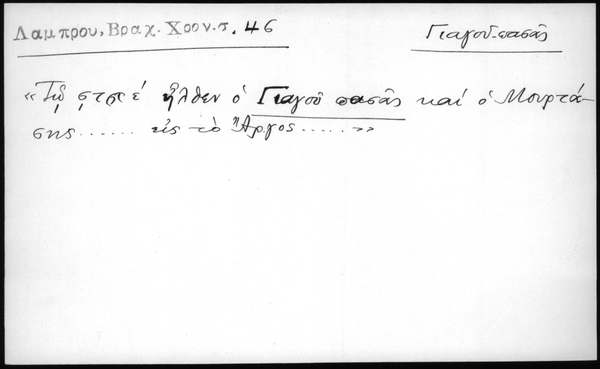 Λαμπρου, Βραχ. Χρον. σ. 46
Γιαγοῦ-πασᾶς
«Τῷ ͵ϛτπε΄ ἦλθεν ὁ Γιαγοῦ πασᾶς καί ὁ Μουρτά-
σης ...... εἰς τὸ Ἄργος ..... »